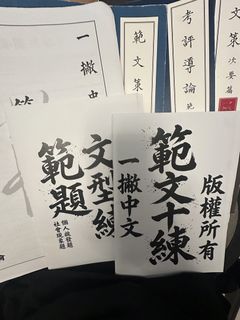 文策
次要篇
考評導論
範文策
一撇中
版權所有
範文十練
一撇中文
文型練
範題